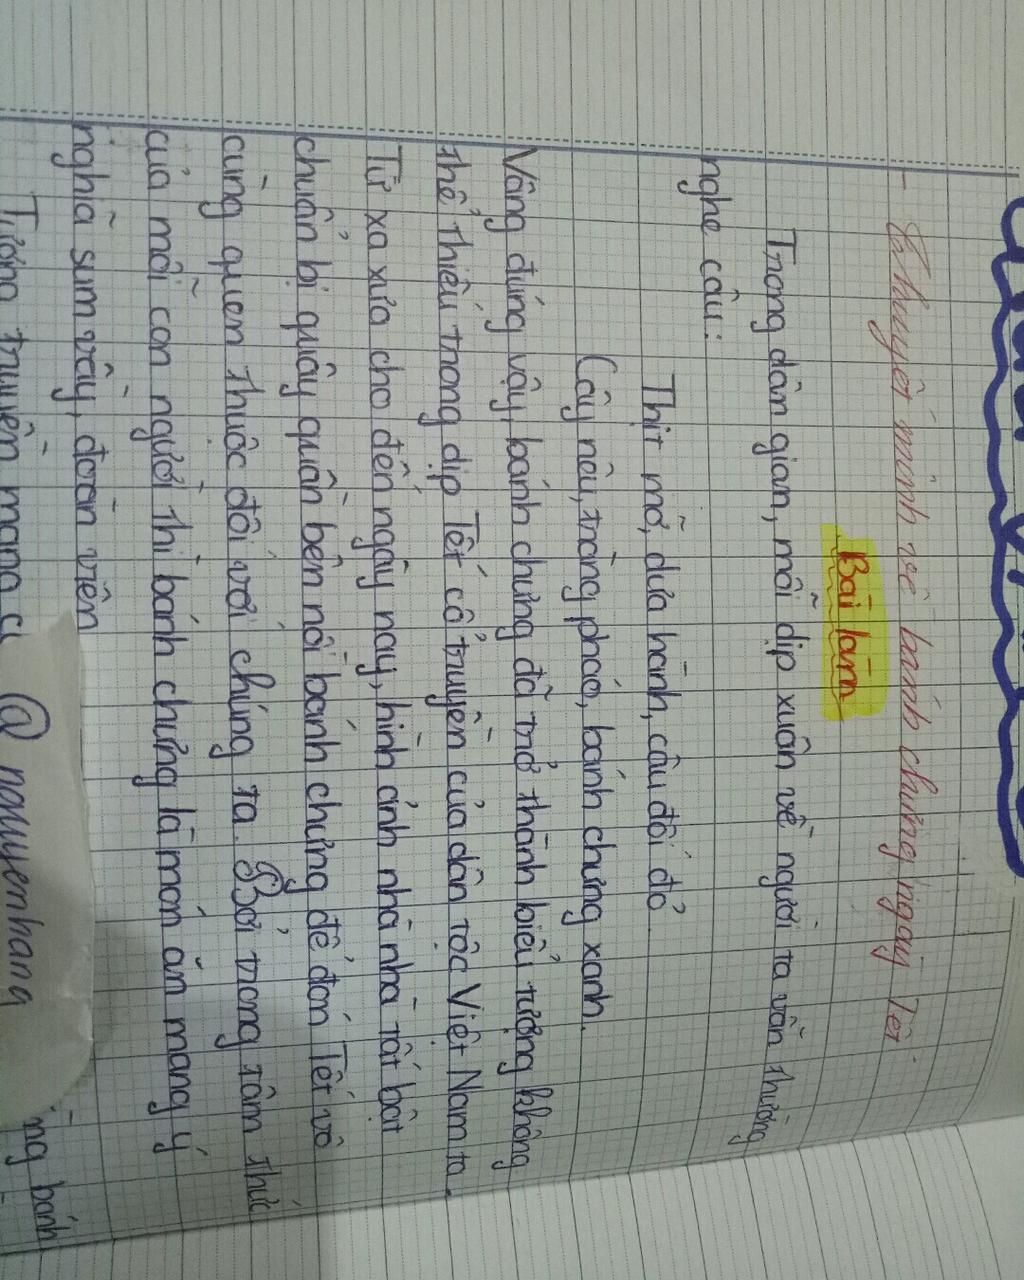 - Thuyết minh về bánh chưng ngày Tết
Bài làm
Trong dân gian, mỗi dịp xuân về người ta vẫn thường
nghe câu:
Thịt mỡ, dưa hành, câu đối đỏ
Cây nêu, tràng pháo, bánh chưng xanh.
Vâng đúng vậy, bánh chưng đã trở thành biểu tượng không
thể thiếu trong dịp Tết cổ truyền của dân tộc Việt Nam ta.
Từ xa xưa cho đến ngày nay, hình ảnh nhà nhà tất bật
chuẩn bị quây quần bên nồi bánh chưng để đón Tết vô
cùng quen thuộc đối với chúng ta. Bởi trong tâm thức
của mỗi con người thì bánh chưng là món ăn mang ý
nghĩa sum vầy, đoàn viên
Tương truyền món bánh
@ nguyenhang